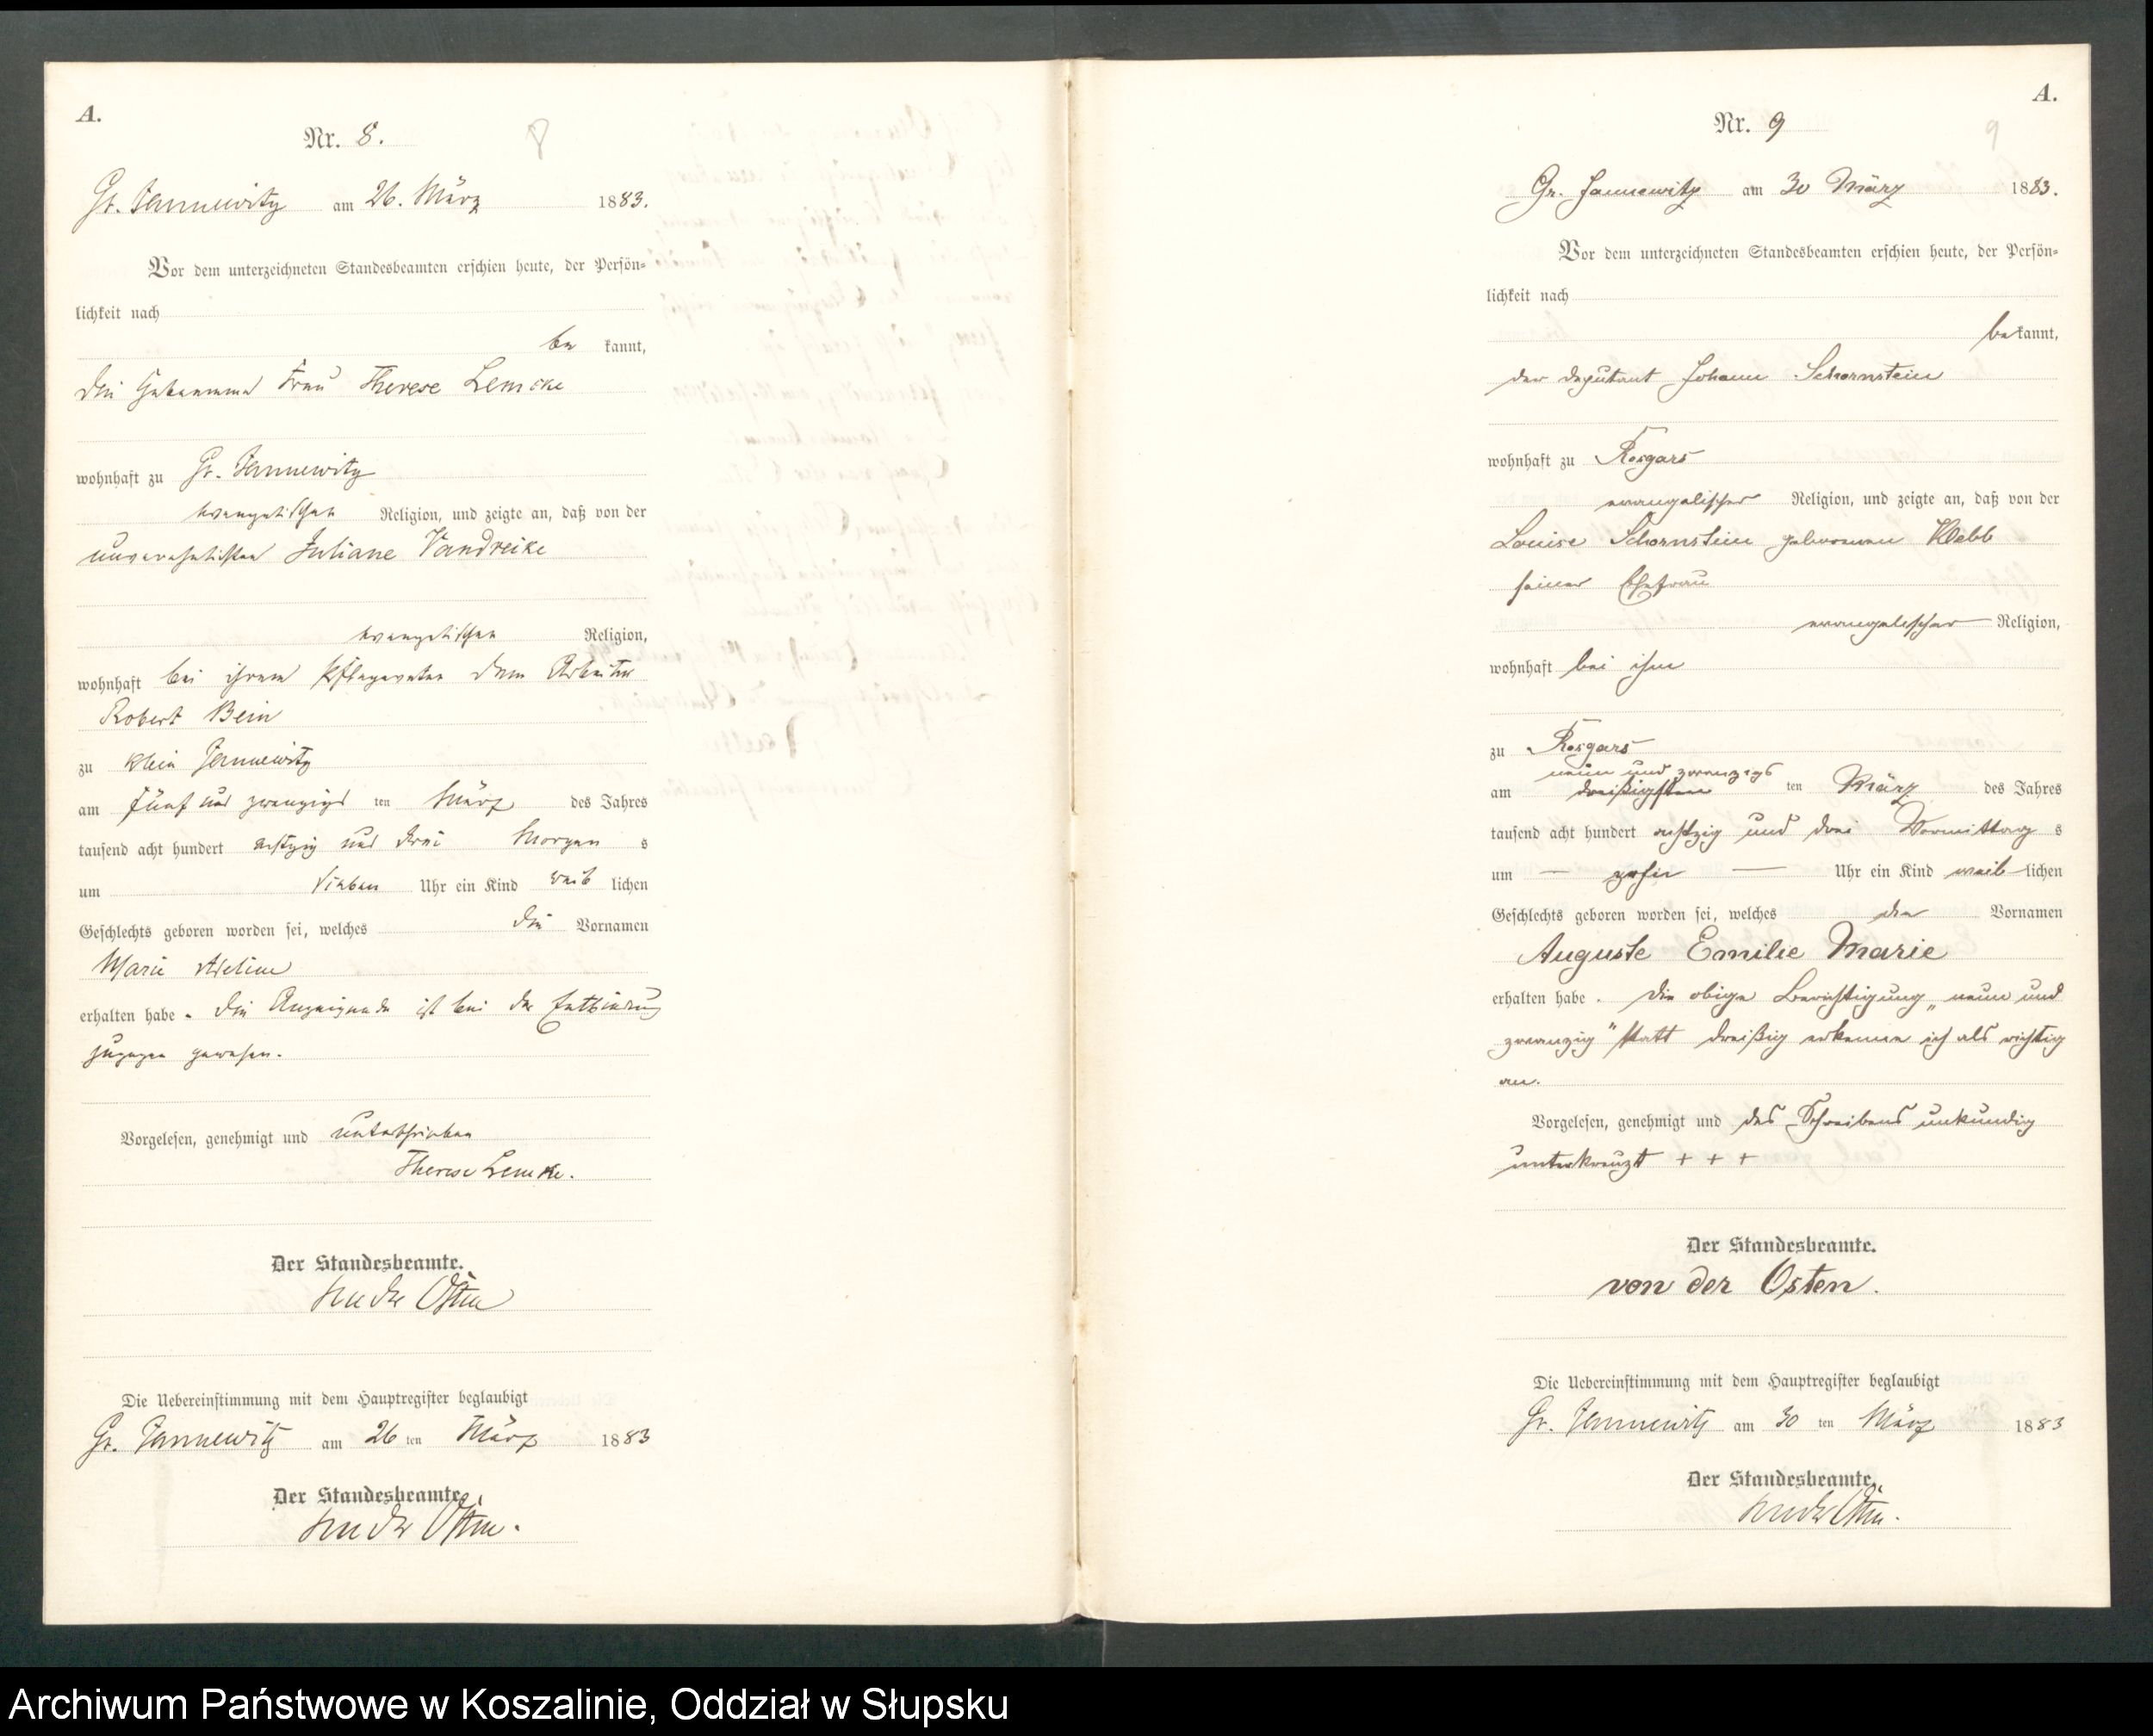 A.
Nr. 8.
8
Gr. Jannewitz am 26. März 1883.
Vor dem unterzeichneten Standesbeamten erschien heute, der Persön-
lichkeit nach
be kannt,
die Hebamme Frau Therese Lemcke
wohnhaft zu Gr. Jannewitz
evangelischer Religion, und zeigte an, daß von der
unverehelichten Juliane Vandreike
evangelischer Religion,
wohnhaft bei ihrem Pflegevater dem Arbeiter
Robert Bein
zu Klein Jannewitz
am fünf und zwanzigs ten März des Jahres
tausend acht hundert achtzig und drei Morgen s
um sieben Uhr ein Kind weib lichen
Geschlechts geboren worden sei, welches die Vornamen
Marie Adeline
erhalten habe. Die Anzeigende ist bei der Entbindung
zugegen gewesen.
Vorgelesen, genehmigt und unterschrieben
Therese Lemcke.
Der Standesbeamte.
von der Osten
Die Uebereinstimmung mit dem Hauptregister beglaubigt
Gr. Jannewitz am 26 ten März 1883
Der Standesbeamte.
von der Osten.
A.
Nr. 9
9
Gr. Jannewitz am 30 März 1883.
Vor dem unterzeichneten Standesbeamten erschien heute, der Persön-
lichkeit nach
be kannt,
der Deputant Johann Schornstein
wohnhaft zu Rosgars
evangelischer Religion, und zeigte an, daß von der
Louise Schornstein geborenen Klebb
seiner Ehefrau
evangelischer Religion,
wohnhaft bei ihm
zu Rosgars
neun und zwanzigs
am dreißigsten ten März des Jahres
tausend acht hundert achtzig und drei Vormittag s
um — zehn — Uhr ein Kind weib lichen
Geschlechts geboren worden sei, welches die Vornamen
Auguste Emilie Marie
erhalten habe. Die obige Berichtigung „neun und
zwanzig" statt dreißig erkenne ich als richtig
an.
Vorgelesen, genehmigt und des Schreibens unkundig
unterkreuzt + + +
Der Standesbeamte.
von der Osten.
Die Uebereinstimmung mit dem Hauptregister beglaubigt
Gr. Jannewitz am 30 ten März 1883
Der Standesbeamte.
von der Osten.
Archiwum Państwowe w Koszalinie, Oddział w Słupsku